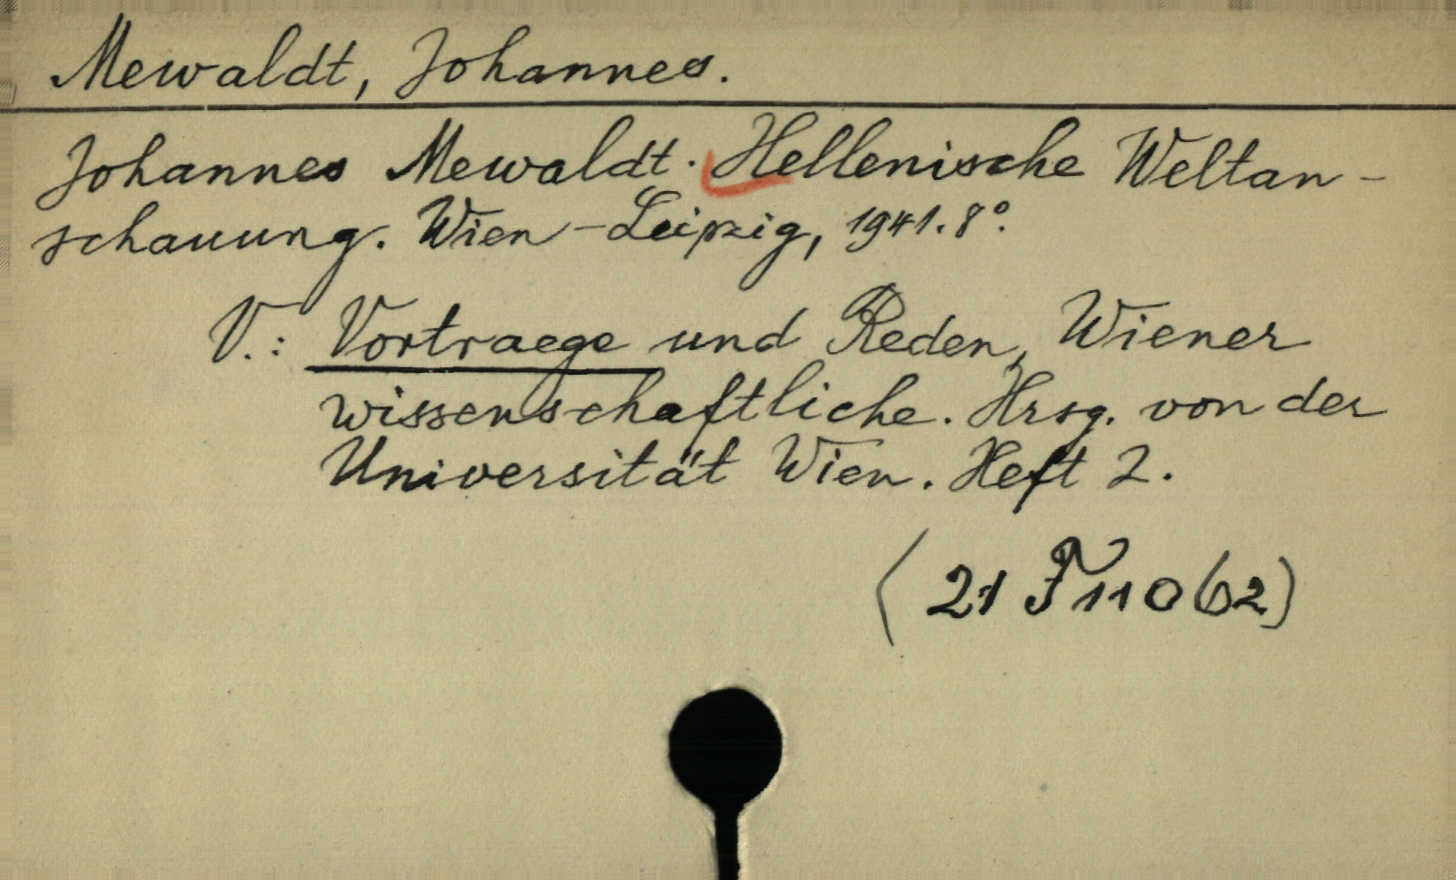 Mewaldt, Johannes.
Johannes Mewaldt. Hellenische Weltan-
schauung. Wien-Leipzig, 1941. 8°.
V.: Vortraege und Reden, Wiener
wissenschaftliche. Hrsg. von der
Universität Wien. Heft 2.
(21 F 110 (02)